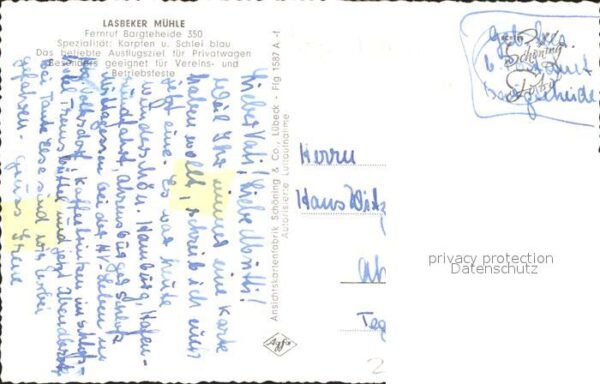 LASBEKER MÜHLE
Fernruf Bargteheide 350
Spezialität: Karpfen u. Schlei blau
Das beliebte Ausflugsziel für Privatwagen
Besonders geeignet für Vereins- und
Betriebsfeste
Lieber Vati, liebe Mutti!
Weil Ihr immer eine Karte
haben wollt, schreib ich euch
jetzt eine. Es war heute
wunderschön. Hamburg, Hafen-
rundfahrt, Ahrensburger Schloß
Mittagessen bei der
Kaffeetrinken im Schloß-
hotel Tremsbüttel und jetzt Abendbrot.
Bei Tante Ilse sind wir vorbei
gefahren.
Ansichtskartenfabrik Schöning & Co., Lübeck - Flg 1587 A-f
Autorisierte Luftaufnahme
Agfa
Schöning
Herrn
Hans
Bargteheide
privacy protection
Datenschutz
2